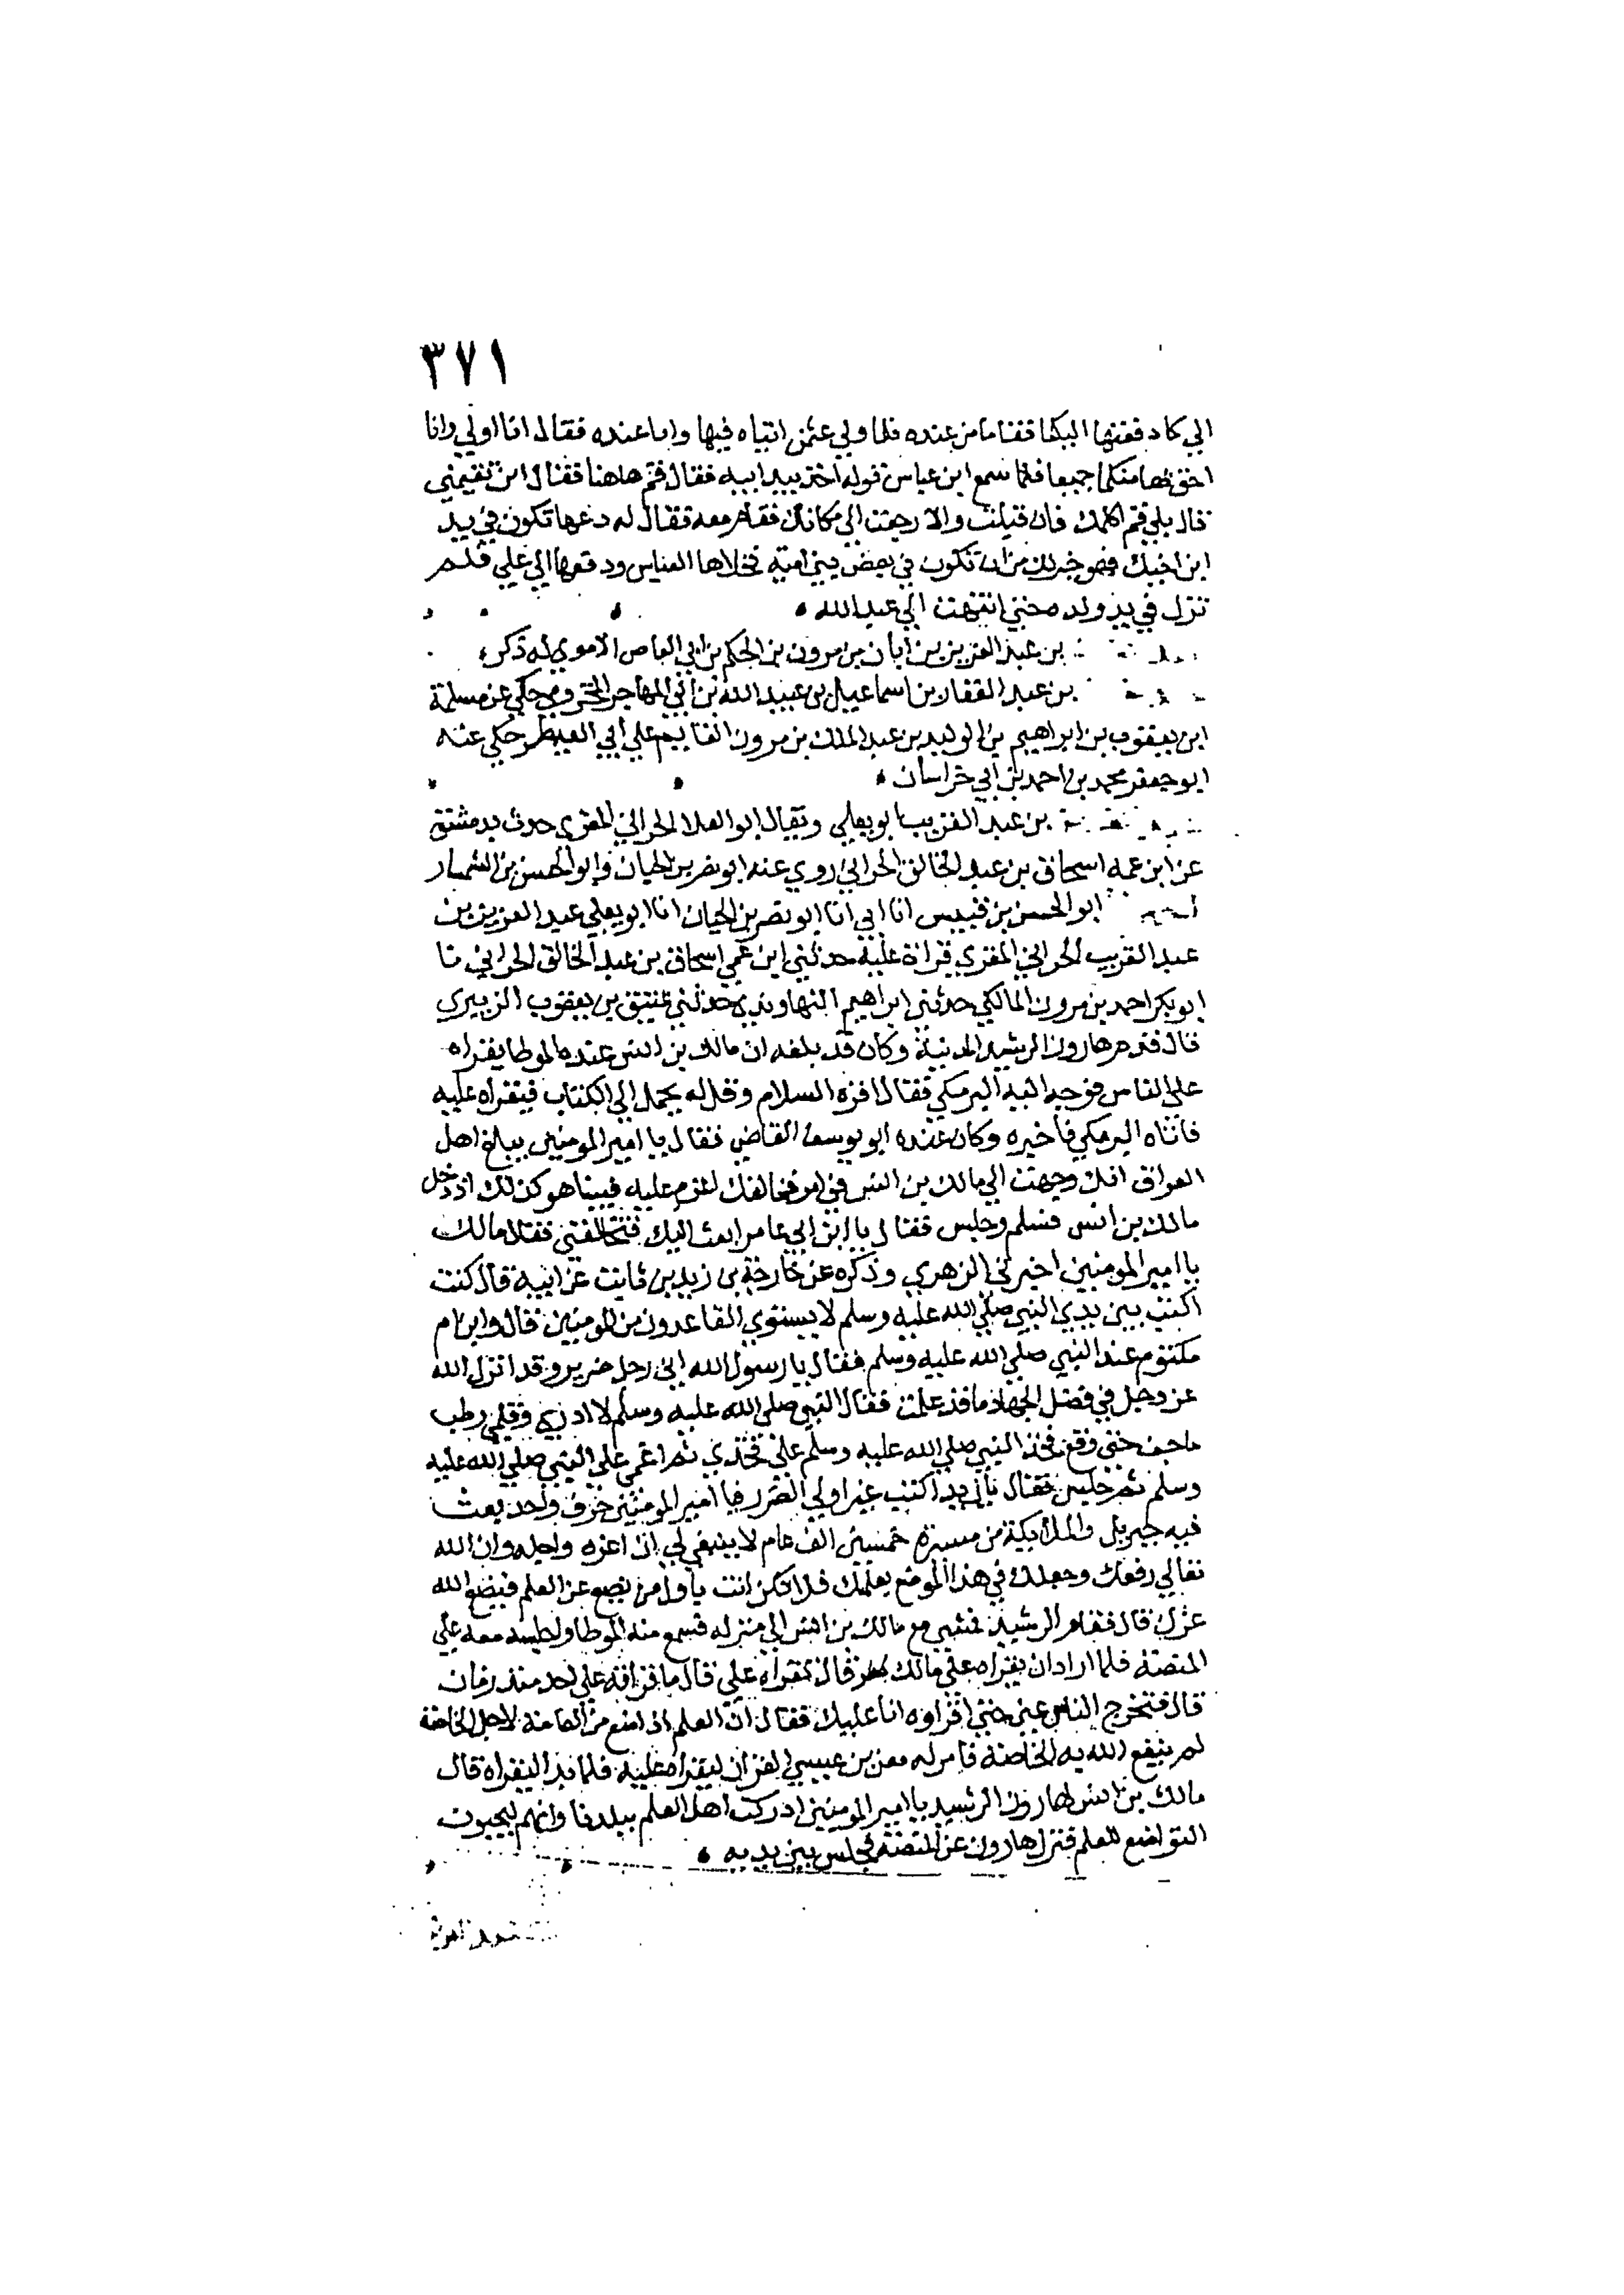 ٣٧١
الي كا دفعتها اليكما فقاما من عنده فلما ولي عثمن اتياه فيها وانا عنده فقال انا اولي وانا
احق بها منكما جميعا فلما سمع ابن عباس قوله اخذ بيد ابيه فقال قم هاهنا فقال اين تقيمني
قال بلي قم اكلمك فان قبلت والا رجعت الي مكانك فقام معه فقال له دعها تكون في يد
ابن اخيك فهو خير لك من ان تكون في بعض بني امية فخلاها العباس ودفعها الي علي فلم
تزل في يد ولده حتي انتهت الي عبد الله
بن عبد العزيز بن ابان بن مرون بن الحكم بن ابي العاص الاموي له ذكر
بن عبد الغفار بن اسماعيل بن عبيد الله بن ابي المهاجر المخزومي حكي عن مسلمة
ابن يعقوب بن ابراهيم بن الوليد بن عبد الملك بن مرون القايم علي ابي العميطر حكي عنه
ابو جعفر محمد بن احمد بن ابي خراسان
بن عبد القريب ابو يعلي ويقال ابو العلا الحراني المقري حدث بدمشق
عن ابن عمه اسحاق بن عبد الخالق الحراني روي عنه ابو نصر بن الجبان وابو الحسن بن السمسار
ابو الحسن بن قبيس انا ابي انا ابو نصر بن الجبان انا ابو يعلي عبد العزيز بن
عبد القريب الحراني المقري قراة عليه حدثني ابن عمي اسحاق بن عبد الخالق الحراني نا
ابو بكر احمد بن مرون المالكي حدثني ابراهيم النهاوندي حدثني عتيق بن يعقوب الزبيري
قال قدم هارون الرشيد المدينة وكان قد بلغه ان مالك بن انس عنده الموطا يقراه
علي الناس فوجه اليه البرمكي فقال اقره السلام وقل له يحمل الي الكتاب فيقراه عليه
فاتاه البرمكي فاخبره وكان عنده ابو يوسف القاضي فقال يا امير المومنين يبلغ اهل
العراق انك وجهت الي مالك بن انس في امر فخالفك اعزم عليه فبينا هو كذلك اذ دخل
مالك بن انس فسلم وجلس فقال يا ابن ابي عامر ابعث اليك فتخالفني فقال مالك
يا امير المومنين اخبرني الزهري وذكره عن خارجة بن زيد بن ثابت عن ابيه قال كنت
اكتب بين يدي النبي صلي الله عليه وسلم لا يستوي القاعدون من المومنين قال وابن ام
مكتوم عند النبي صلي الله عليه وسلم فقال يا رسول الله اني رجل ضرير وقد انزل الله
عز وجل في فضل الجهاد ما قد علمت فقال النبي صلي الله عليه وسلم لا ادري وقلمي رطب
ما جف حتي وقع فخذ النبي صلي الله عليه وسلم علي فخذي ثم اغمي علي النبي صلي الله عليه
وسلم ثم جلس فقال يا زيد اكتب غير اولي الضرر فيا امير المومنين حرف واحد بعث
فيه جبريل والملايكة من مسيرة خمسين الف عام لا ينبغي لي ان اعزه واجله وان الله
تعالي رفعك وجعلك في هذا الموضع بعلمك فلا تكن انت باول من يضع عز العلم فيضع الله
عزك قال فقام الرشيد فمشي مع مالك بن انس الي منزله فسمع منه الموطا واجلسه معه علي
المنصة فلما اراد ان يقراه علي مالك قال تقراه علي قال ما قراته علي احد منذ زمان
قال فتخرج الناس عني حتي اقراوه انا عليك فقال ان العلم اذا منع من العامة لاجل الخاصة
لم ينفع الله به الخاصة فامر له معن بن عيسي القزاز ليقراه عليه فلما بدا ليقراه قال
مالك بن انس لهارون الرشيد يا امير المومنين ادركت اهل العلم ببلدنا وانهم ليحبون
التواضع للعلم فنزل هارون عن المنصة فجلس بين يديه